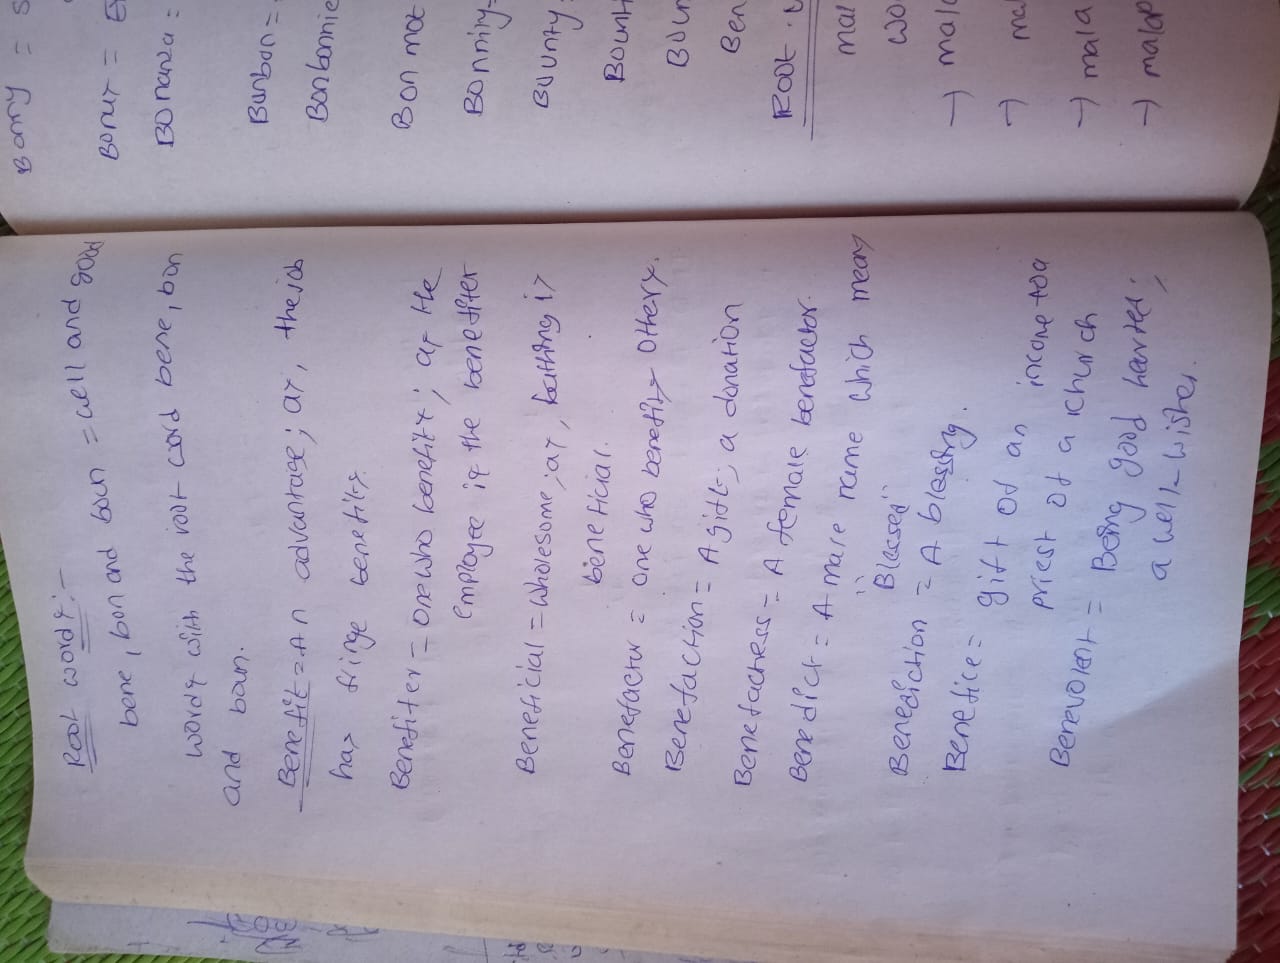 Root words:-
bene, bon and boun = well and good
words with the root word bene, bon
and boun.
Benefit = An advantage; as, the job
has fringe benefits.
Benefiter = one who benefits; as the
employee is the benefiter
Beneficial = wholesome; as, bathing is
beneficial.
Benefactor = one who benefits others.
Benefaction = A gift; a donation
Benefactress = A female benefactor.
Benedict = A male name which means
"Blessed"
Benediction = A blessing.
Benefice = gift of an income to a
priest of a church
Benevolent = Being good harted;
a well-wisher.
Bonny =
Bonus =
Bonanza =
Bonbon =
Bonbonnie
Bon mot
Bonnity =
Bounty =
Bount
Boun
Ben
Root
mal
wo
→ mala
→ mal
→ mala
→ malap